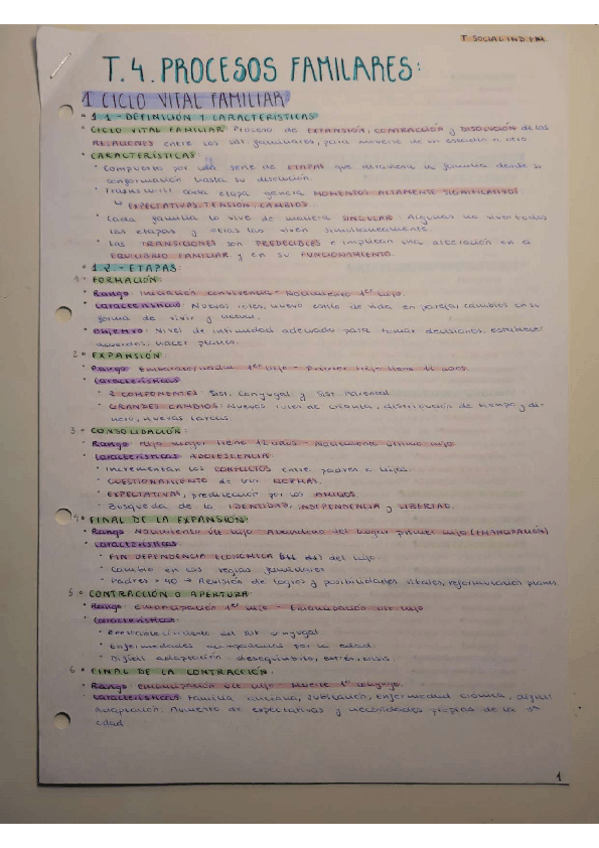 T. SOCIAL IND. FAM.
T.4. PROCESOS FAMILARES:
1 CICLO VITAL FAMILIAR
1.1 - DEFINICIÓN Y CARACTERÍSTICAS
CICLO VITAL FAMILIAR: Proceso de EXPANSIÓN, CONTRACCIÓN y DISOLUCIÓN de las
RELACIONES entre los sist. familiares, para moverse de un estadio a otro
CARACTERÍSTICAS
Compuesto por una serie de ETAPAS que atraviesa la familia desde su
conformación hasta su disolución.
cada etapa genera MOMENTOS ALTAMENTE SIGNIFICATIVOS
↳ EXPECTATIVAS, TENSIÓN, CAMBIOS
Cada familia lo vive de manera SINGULAR: Algunas no viven todas
las etapas y otras las viven simultáneamente.
Las TRANSICIONES son PREDECIBLES e implican una alteración en el
EQUILIBRIO FAMILIAR y en su FUNCIONAMIENTO.
1.2 - ETAPAS
1. FORMACIÓN:
Rango: Iniciación convivencia - Nacimiento 1er hijo.
Características: Nuevos roles, nuevo estilo de vida en pareja, cambios en su
forma de vivir y
Objetivo: Nivel de intimidad adecuado para tomar decisiones, establecer
acuerdos, hacer planes.
2. EXPANSIÓN:
Rango: 1er hijo - Primer hijo tiene 12 años.
Características
2 COMPONENTES: Sist. Conyugal y Sist. Parental
GRANDES CAMBIOS: Nuevos roles de crianza, distribución de tiempo y di-
nero, nuevas tareas
3. CONSOLIDACIÓN:
Rango: Hijo mayor tiene 12 años - Nacimiento último hijo
Características: ADOLESCENCIA:
Incrementan los CONFLICTOS entre padres e hijos.
CUESTIONAMIENTO de las NORMAS.
EXPECTATIVAS, predilección por los AMIGOS.
Búsqueda de la IDENTIDAD, INDEPENDENCIA y LIBERTAD.
4. FINAL DE LA EXPANSIÓN
Rango: Nacimiento últ. hijo - Abandono del hogar primer hijo (EMANCIPACIÓN)
Características
FIN DEPENDENCIA ECONÓMICA del hijo.
Cambio en las reglas familiares
Padres > 40 → Revisión de logros y posibilidades vitales, reformularlos planes.
5. CONTRACCIÓN O APERTURA:
Rango: emancipación 1er hijo - Emancipación últ. hijo
Características:
del sist. conyugal.
Enfermedades por la edad.
Difícil adaptación: desequilibrio, estrés, crisis.
6. FINAL DE LA CONTRACCIÓN:
Rango: emancipación últ. hijo - Muerte 1er cónyuge.
Características: Familia anciana, Jubilación, enfermedad crónica, difícil
adaptación. Aumento de expectativas y necesidades propias de la 3ª
edad
1